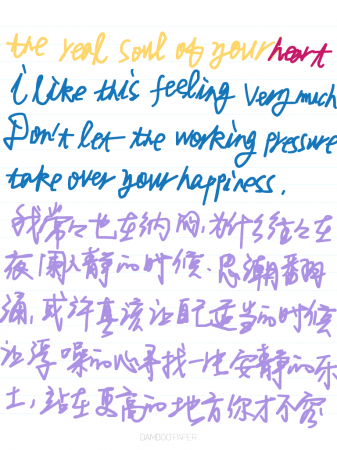 the real soul of your heart
i like this feeling very much
Don't let the working pressure
take over your happiness.
我常々也在纳闷,为什么往々在
夜阑人静的时候.思潮翻
涌,或许真该让自己适当的时候
让浮噪的心寻找一片安静的乐
土,站在更高的地方你才不容
DAMDOOPAPER